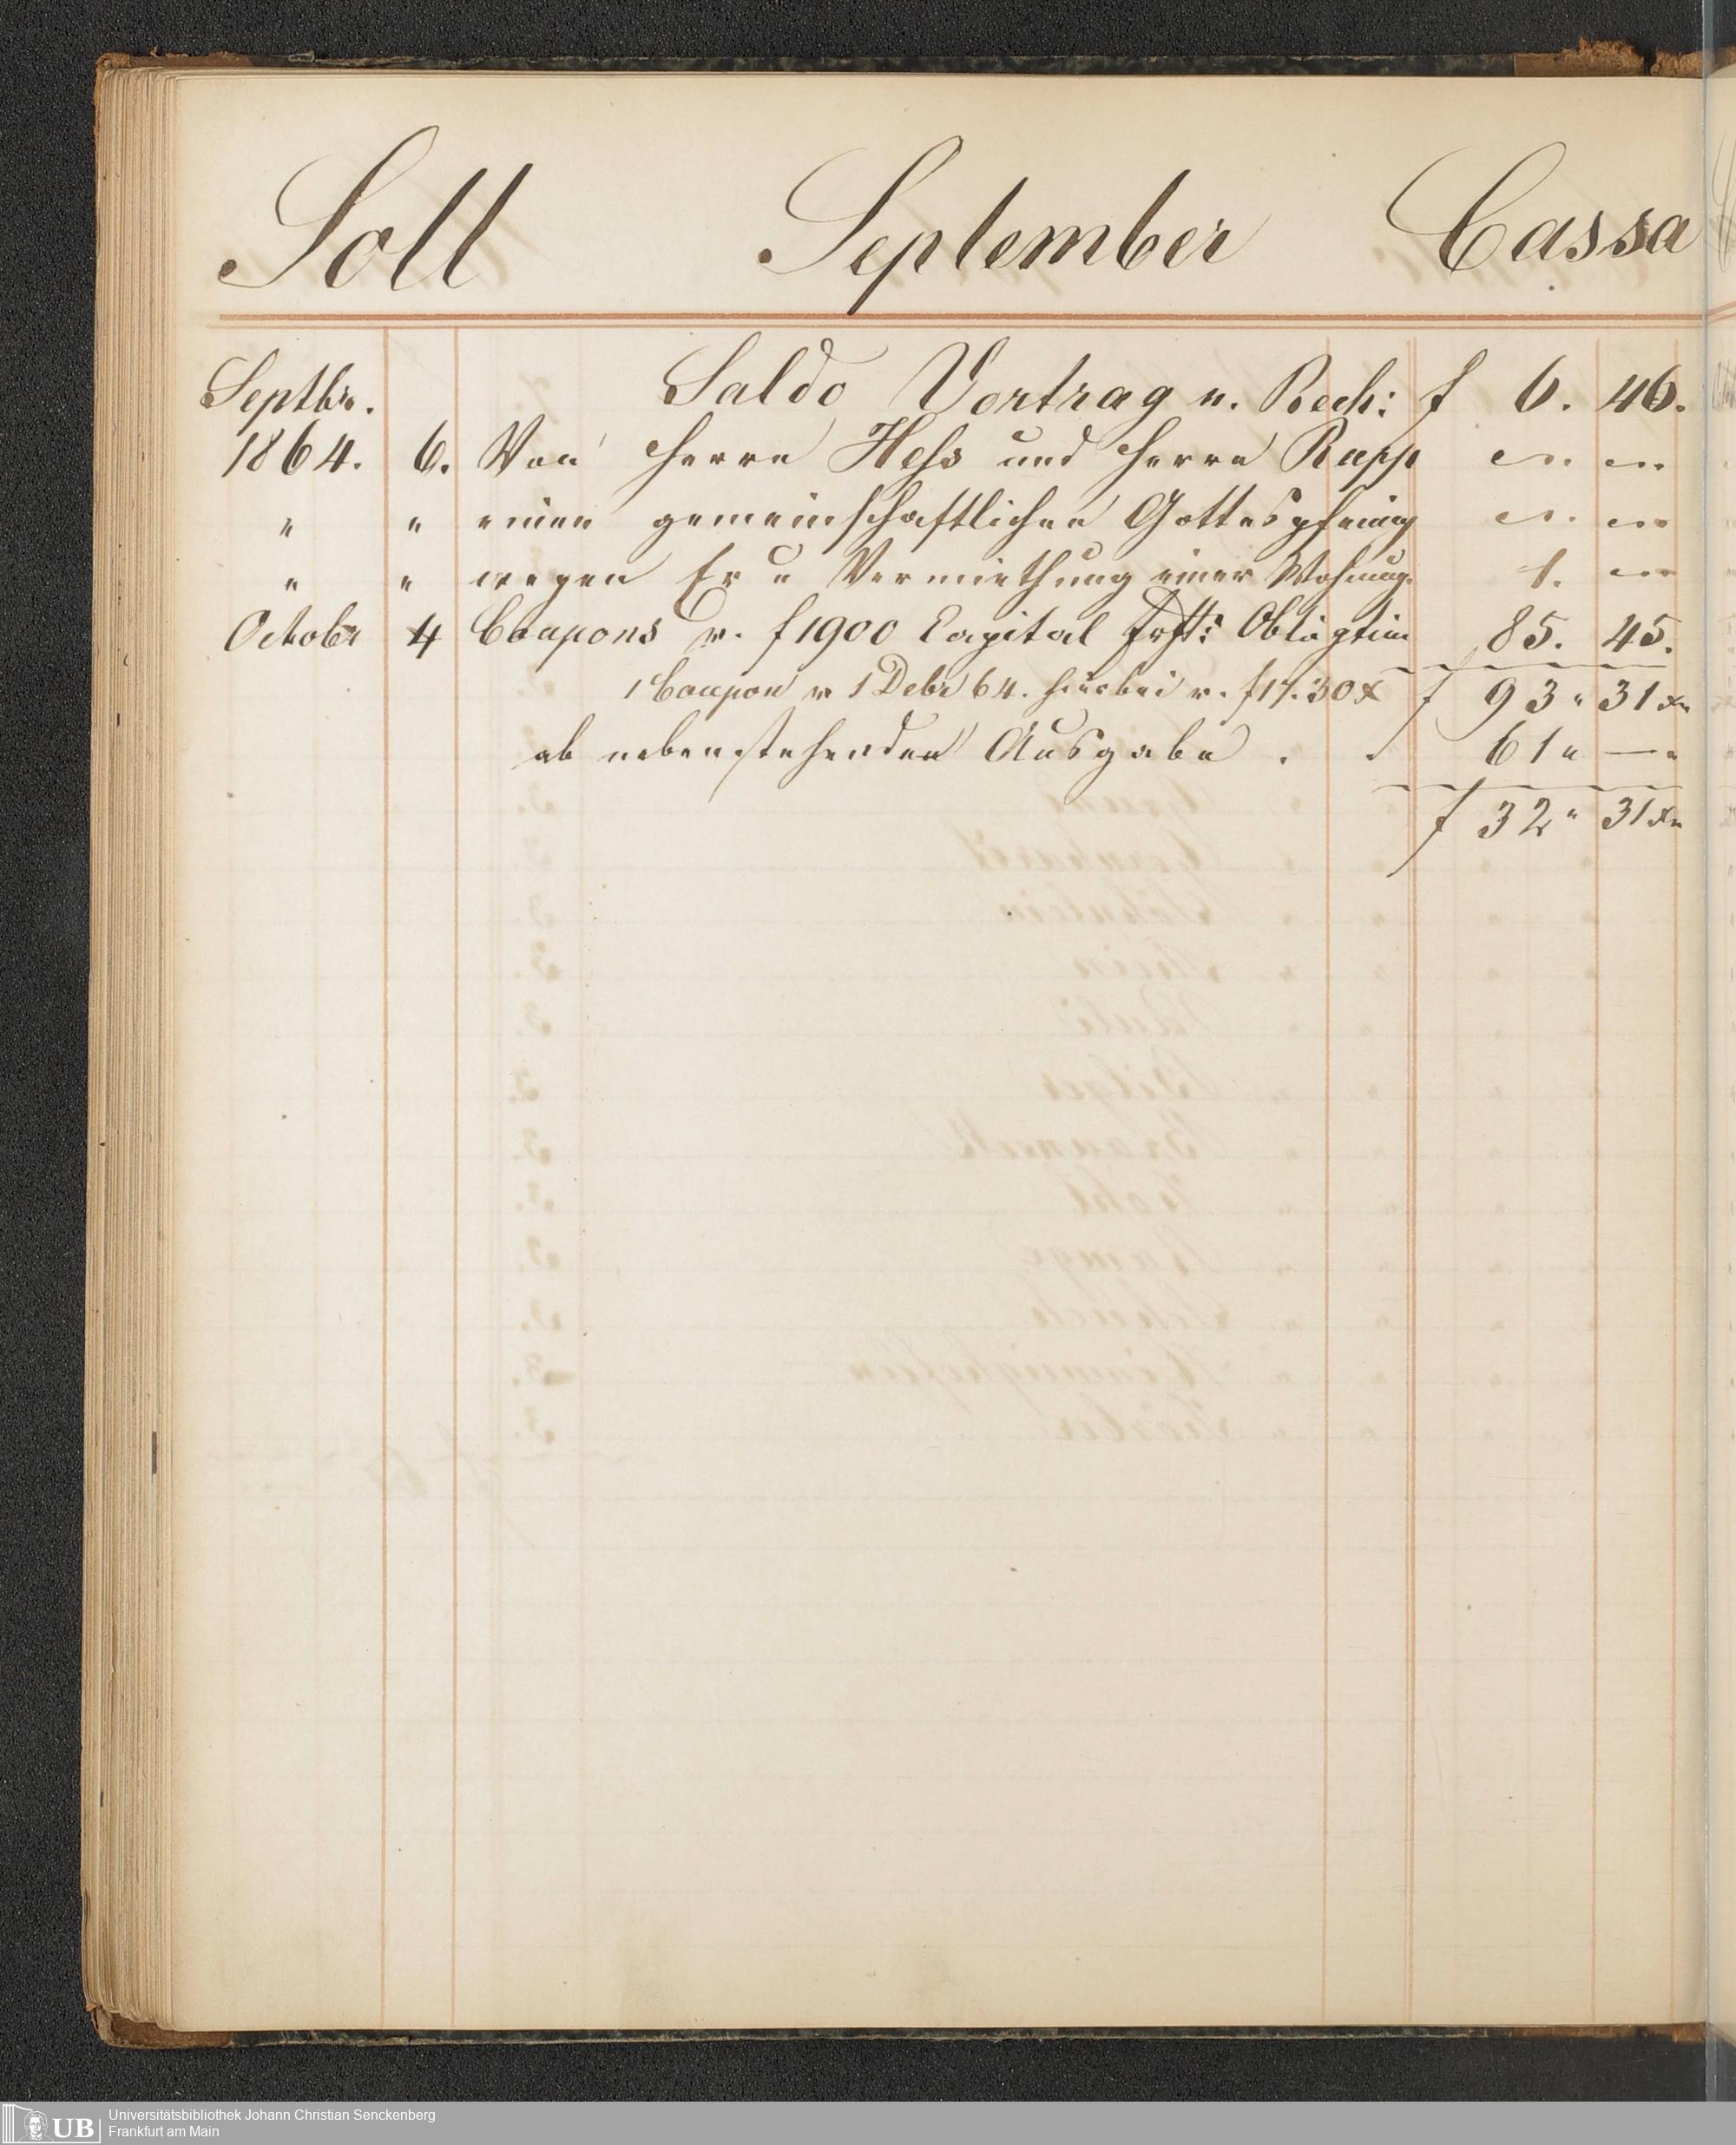 Soll September Cassa
Septbr. Saldo Vortrag v. Rech: f 6. 46.
1864. 6. Von Herrn Hess und Herrn Rupp " . " .
" " einen gemeinschaftlichen Gottespfennig " . " .
" " wegen Er u Vermiethung einer Wohnung. 1. " .
Octobr 4 Coupons v. f 1900 Capital Frft: Obligtion 85. 45.
1 Coupon v 1 Debr 64. hierbei v. f 17. 30 x f 93 " 31 x "
ab nebenstehenden Ausgabe . . 61 " — "
f 32 " 31 x "
UB Universitätsbibliothek Johann Christian Senckenberg
Frankfurt am Main